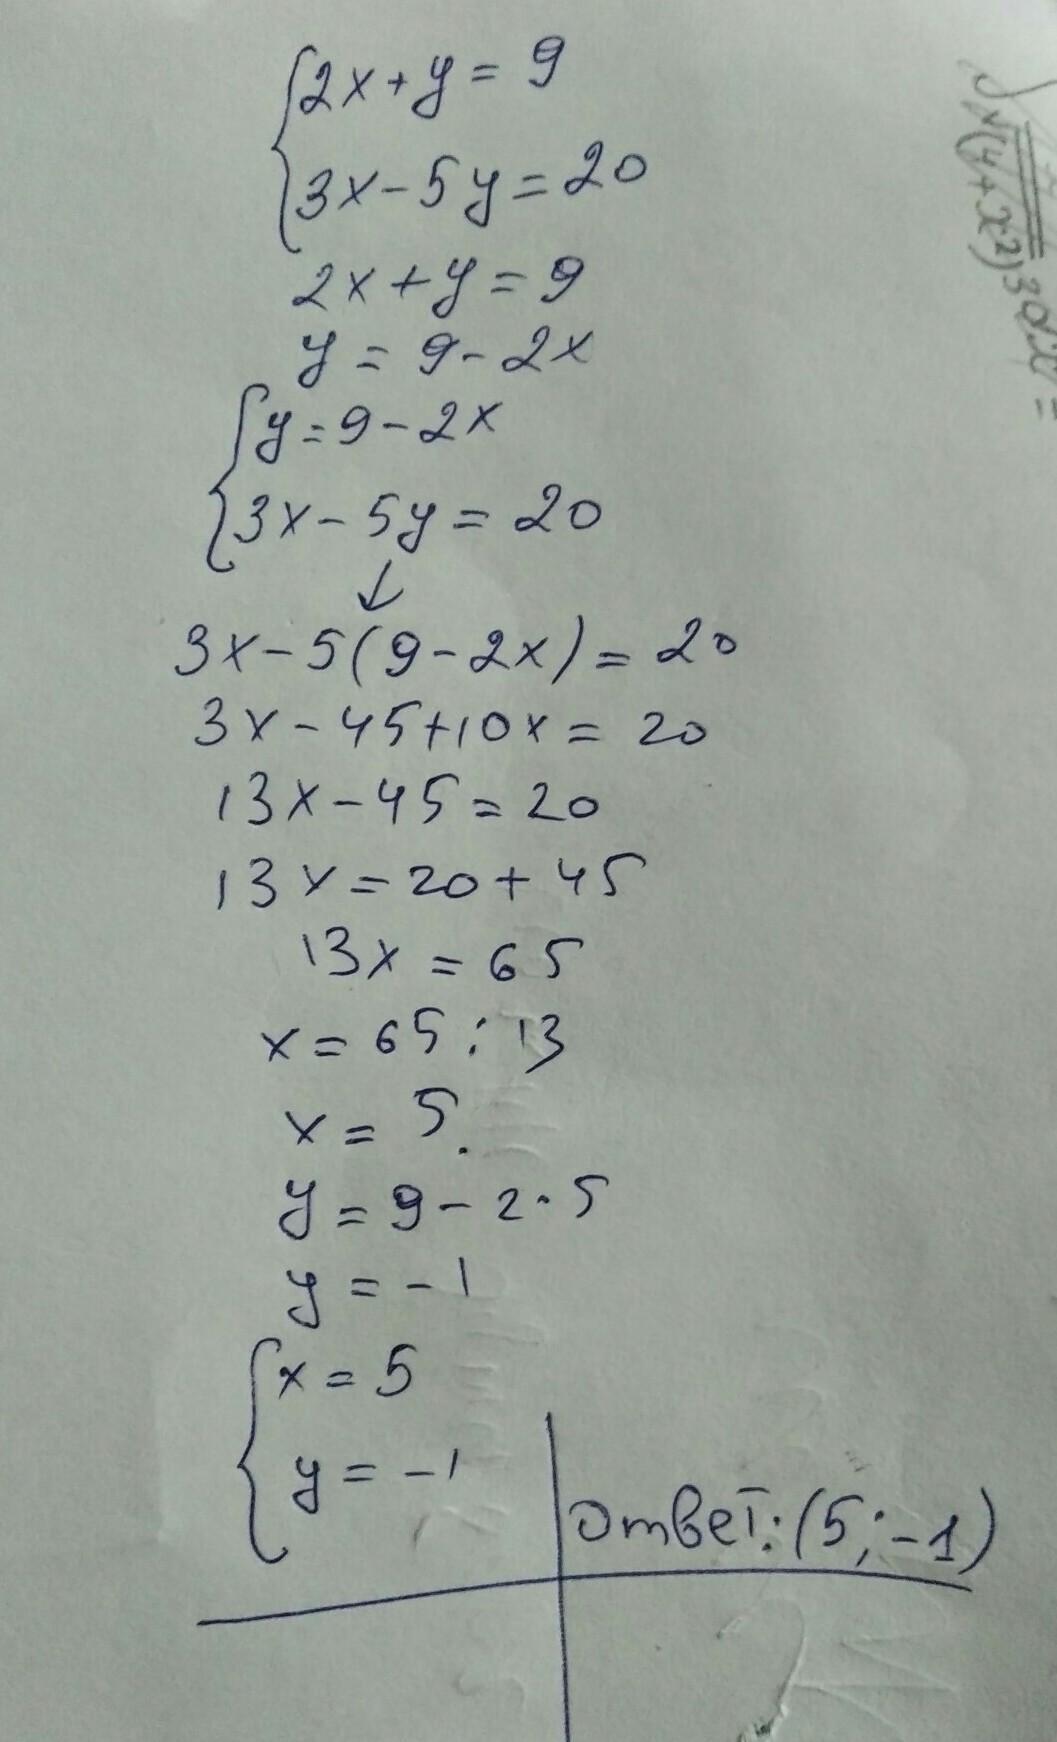 {2x+y=9
3x-5y=20
2x+y=9
y=9-2x
{y=9-2x
3x-5y=20
↓
3x-5(9-2x)=20
3x-45+10x=20
13x-45=20
13x=20+45
13x=65
x=65:13
x=5.
y=9-2·5
y=-1
{x=5
y=-1
Ответ:(5;-1)